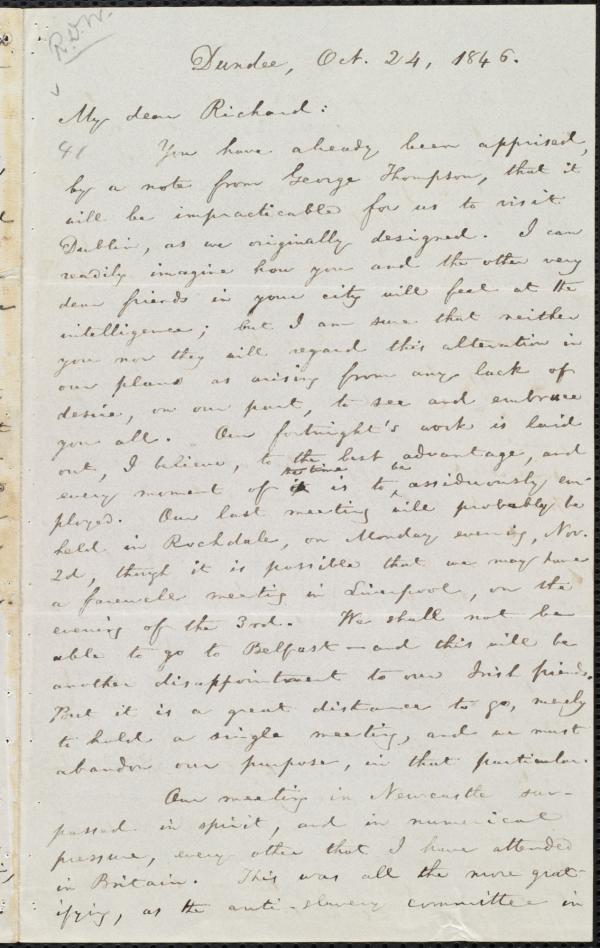 R.D.W.
Dundee, Oct. 24, 1846.
My dear Richard:
41 You have already been apprised,
by a note from George Thompson, that it
will be impracticable for us to visit
Dublin, as we originally designed. I can
readily imagine how you and the other very
dear friends in your city will feel at the
intelligence; but I am sure that neither
you nor they will regard this alteration in
our plans as arising from any lack of
desire, on our part, to see and embrace
you all. Our fortnight's work is laid
out, I believe, to the best advantage, and
every moment of is to be assiduously em-
ployed. Our last meeting will probably be
held in Rochdale, on Monday evening, Nov.
2d, though it is possible that we may have
a farewell meeting in Liverpool, on the
evening of the 3rd. We shall not be
able to go to Belfast—and this will be
another disappointment to our Irish friends.
But it is a great distance to go, merely
to hold a single meeting, and we must
abandon our purpose, in that particular.
Our meeting in Newcastle sur-
passed in spirit, and in numerical
pressure, every other that I have attended
in Britain. This was all the more grat-
ifying, as the anti-slavery committee in